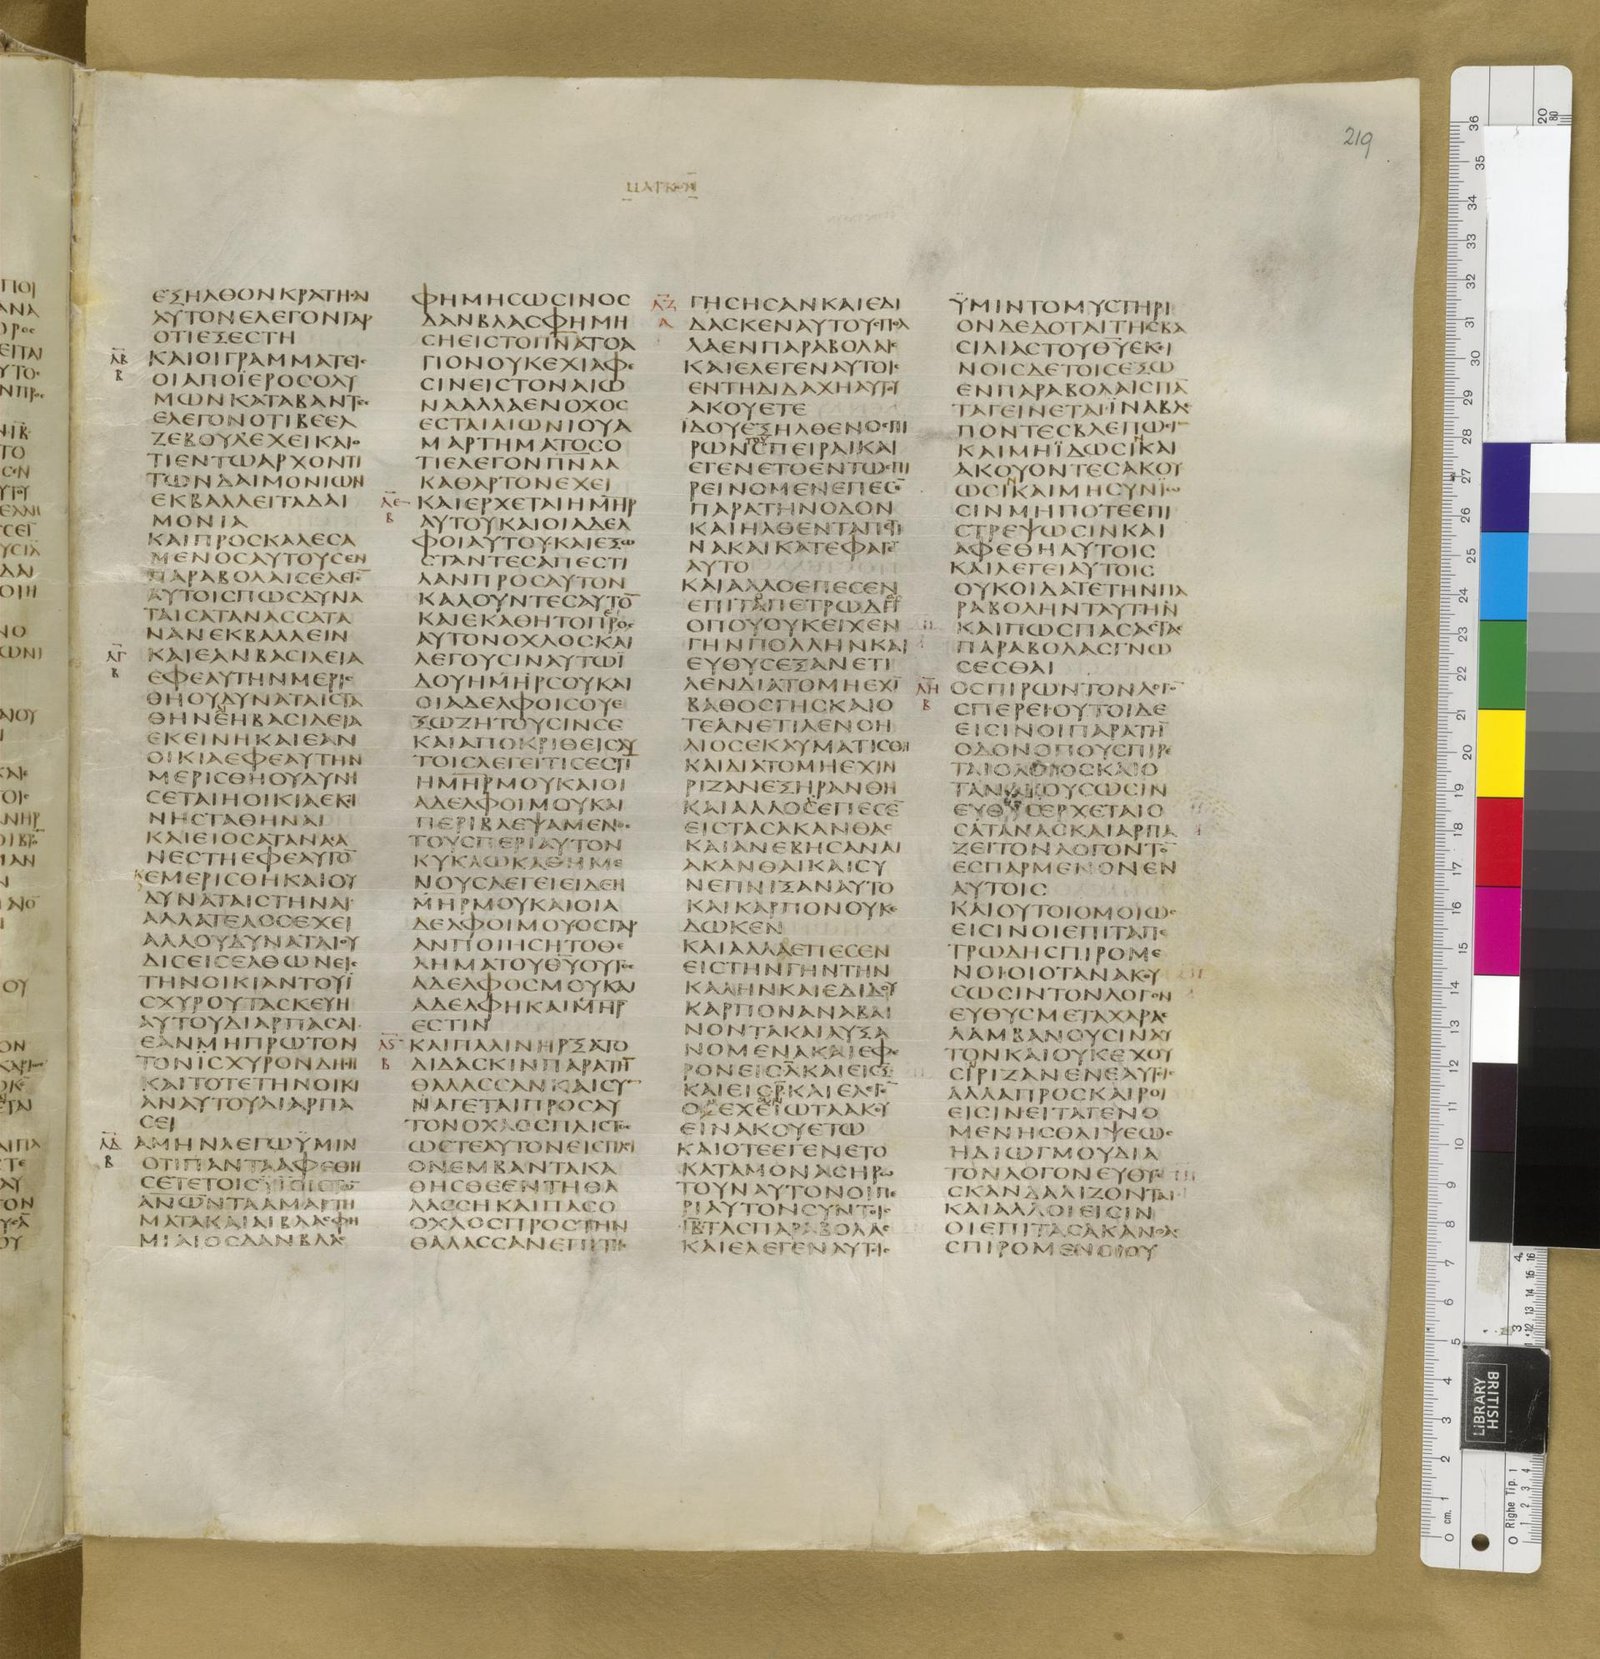 219
ΜΑΡΚΟΝ
ΕΞΗΛΘΟΝ ΚΡΑΤΗΣΑΙ
ΑΥΤΟΝ ΕΛΕΓΟΝ ΓΑΡ
ΟΤΙ ΕΞΕΣΤΗ
ΛΒ
Β
ΚΑΙ ΟΙ ΓΡΑΜΜΑΤΕΙΣ
ΟΙ ΑΠΟ ΪΕΡΟΣΟΛΥ
ΜΩΝ ΚΑΤΑΒΑΝΤΕΣ
ΕΛΕΓΟΝ ΟΤΙ ΒΕΕΛ
ΖΕΒΟΥΛ ΕΧΕΙ ΚΑΙ Ο
ΤΙ ΕΝ ΤΩ ΑΡΧΟΝΤΙ
ΤΩΝ ΔΑΙΜΟΝΙΩΝ
ΕΚΒΑΛΛΕΙ ΤΑ ΔΑΙ
ΜΟΝΙΑ
ΚΑΙ ΠΡΟΣΚΑΛΕΣΑ
ΜΕΝΟΣ ΑΥΤΟΥΣ ΕΝ
ΠΑΡΑΒΟΛΑΙΣ ΕΛΕΓΕ̅
ΑΥΤΟΙΣ ΠΩΣ ΔΥΝΑ
ΤΑΙ ΣΑΤΑΝΑΣ ΣΑΤΑ
ΝΑΝ ΕΚΒΑΛΛΕΙΝ
ΛΓ
Β
ΚΑΙ ΕΑΝ ΒΑΣΙΛΕΙΑ
ΕΦ ΕΑΥΤΗΝ ΜΕΡΙΣ
ΘΗ ΟΥ ΔΥΝΑΤΑΙ ΣΤΑ
ΘΗΝΕ Η ΒΑΣΙΛΕΙΑ
ΕΚΕΙΝΗ ΚΑΙ ΕΑΝ
ΟΙΚΙΑ ΕΦ ΕΑΥΤΗΝ
ΜΕΡΙΣΘΗ ΟΥ ΔΥΝΗ
ΣΕΤΑΙ Η ΟΙΚΙΑ ΕΚΕΙ
ΝΗ ΣΤΑΘΗΝΑΙ
ΚΑΙ ΕΙ Ο ΣΑΤΑΝΑΣ Α
ΝΕΣΤΗ ΕΦ ΕΑΥΤΟ̅
ΕΜΕΡΙΣΘΗ ΚΑΙ ΟΥ
ΔΥΝΑΤΑΙ ΣΤΗΝΑΙ
ΑΛΛΑ ΤΕΛΟΣ ΕΧΕΙ
ΑΛΛ ΟΥ ΔΥΝΑΤΑΙ ΟΥ
ΔΙΣ ΕΙΣΕΛΘΩΝ ΕΙΣ
ΤΗΝ ΟΙΚΙΑΝ ΤΟΥ Ϊ
ΣΧΥΡΟΥ ΤΑ ΣΚΕΥΗ
ΑΥΤΟΥ ΔΙΑΡΠΑΣΑΙ
ΕΑΝ ΜΗ ΠΡΩΤΟΝ
ΤΟΝ ΪΣΧΥΡΟΝ ΔΗΣΗ
ΚΑΙ ΤΟΤΕ ΤΗΝ ΟΙΚΙ
ΑΝ ΑΥΤΟΥ ΔΙΑΡΠΑ
ΣΕΙ
ΛΔ
Β
ΑΜΗΝ ΛΕΓΩ ΫΜΙΝ
ΟΤΙ ΠΑΝΤΑ ΑΦΕΘΗ
ΣΕΤΕ ΤΟΙΣ ΥΙΟΙΣ ΤΩ̅
ΑΝΩ̅Ν ΤΑ ΑΜΑΡΤΗ
ΜΑΤΑ ΚΑΙ ΑΙ ΒΛΑΣΦΗ
ΜΙΑΙ ΟΣΑ ΑΝ ΒΛΑΣ
ΦΗΜΗΣΩΣΙΝ ΟΣ
Δ ΑΝ ΒΛΑΣΦΗΜΗ
ΣΗ ΕΙΣ ΤΟ Π̅Ν̅Α̅ ΤΟ Α
ΓΙΟΝ ΟΥΚ ΕΧΙ ΑΦΕ
ΣΙΝ ΕΙΣ ΤΟΝ ΑΙΩ
ΝΑ ΑΛΛΑ ΕΝΟΧΟΣ
ΕΣΤΑΙ ΑΙΩΝΙΟΥ Α
ΜΑΡΤΗΜΑΤΟΣ Ο
ΤΙ ΕΛΕΓΟΝ Π̅Ν̅Α̅ Α
ΚΑΘΑΡΤΟΝ ΕΧΕΙ
ΛΕ
Β
ΚΑΙ ΕΡΧΕΤΑΙ Η Μ̅Η̅Ρ̅
ΑΥΤΟΥ ΚΑΙ ΟΙ ΑΔΕΛ
ΦΟΙ ΑΥΤΟΥ ΚΑΙ ΕΞΩ
ΣΤΑΝΤΕΣ ΑΠΕΣΤΙ
ΛΑΝ ΠΡΟΣ ΑΥΤΟΝ
ΚΑΛΟΥΝΤΕΣ ΑΥΤΟ̅
ΚΑΙ ΕΚΑΘΗΤΟ ΠΡΟΣ
ΑΥΤΟΝ ΟΧΛΟΣ ΚΑΙ
ΛΕΓΟΥΣΙΝ ΑΥΤΩ Ϊ
ΔΟΥ Η Μ̅Η̅Ρ̅ ΣΟΥ ΚΑΙ
ΟΙ ΑΔΕΛΦΟΙ ΣΟΥ Ε
ΞΩ ΖΗΤΟΥΣΙΝ ΣΕ
ΚΑΙ ΑΠΟΚΡΙΘΕΙΣ ΑΥ
ΤΟΙΣ ΛΕΓΕΙ ΤΙΣ ΕΣΤΙ̅
Η Μ̅Η̅Ρ̅ ΜΟΥ ΚΑΙ ΟΙ
ΑΔΕΛΦΟΙ ΜΟΥ ΚΑΙ
ΠΕΡΙΒΛΕΨΑΜΕΝΟΣ
ΤΟΥΣ ΠΕΡΙ ΑΥΤΟΝ
ΚΥΚΛΩ ΚΑΘΗΜΕ
ΝΟΥΣ ΛΕΓΕΙ ΕΙΔΕ Η
ΜΗΡ ΜΟΥ ΚΑΙ ΟΙ Α
ΔΕΛΦΟΙ ΜΟΥ ΟΣ ΓΑΡ
ΑΝ ΠΟΙΗΣΗ ΤΟ ΘΕ
ΛΗΜΑ ΤΟΥ Θ̅Υ̅ ΟΥΤΟΣ
ΑΔΕΛΦΟΣ ΜΟΥ ΚΑΙ
ΑΔΕΛΦΗ ΚΑΙ Μ̅Η̅Ρ̅
ΕΣΤΙΝ
ΛϚ
Β
ΚΑΙ ΠΑΛΙΝ ΗΡΞΑΤΟ
ΔΙΔΑΣΚΙΝ ΠΑΡΑ ΤΗ̅
ΘΑΛΑΣΣΑΝ ΚΑΙ ΣΥ̅
ΝΑΓΕΤΑΙ ΠΡΟΣ ΑΥ
ΤΟΝ ΟΧΛΟΣ ΠΛΙΣΤΟΣ
ΩΣΤΕ ΑΥΤΟΝ ΕΙΣ ΠΛΟΙ
ΟΝ ΕΜΒΑΝΤΑ ΚΑ
ΘΗΣΘΕ ΕΝ ΤΗ ΘΑ
ΛΑΣΣΗ ΚΑΙ ΠΑΣ Ο
ΟΧΛΟΣ ΠΡΟΣ ΤΗΝ
ΘΑΛΑΣΣΑΝ ΕΠΙ ΤΗΣ
ΛΖ
Α
ΓΗΣ ΗΣΑΝ ΚΑΙ ΕΔΙ
ΔΑΣΚΕΝ ΑΥΤΟΥΣ ΠΟΛ
ΛΑ ΕΝ ΠΑΡΑΒΟΛΑΙΣ
ΚΑΙ ΕΛΕΓΕΝ ΑΥΤΟΙΣ
ΕΝ ΤΗ ΔΙΔΑΧΗ ΑΥΤΟΥ
ΑΚΟΥΕΤΕ
ΪΔΟΥ ΕΞΗΛΘΕΝ Ο ΣΠΙ
ΡΩΝ ΣΠΕΙΡΑΙ ΚΑΙ
ΕΓΕΝΕΤΟ ΕΝ ΤΩ ΣΠΙ
ΡΕΙΝ Ο ΜΕΝ ΕΠΕΣΕ̅
ΠΑΡΑ ΤΗΝ ΟΔΟΝ
ΚΑΙ ΗΛΘΕΝ ΤΑ ΠΕΤΙ
ΝΑ ΚΑΙ ΚΑΤΕΦΑΓΕ̅
ΑΥΤΟ
ΚΑΙ ΑΛΛΟ ΕΠΕΣΕΝ
ΕΠΙ ΤΑ ΠΕΤΡΩΔΗ
ΟΠΟΥ ΟΥΚ ΕΙΧΕΝ
ΓΗΝ ΠΟΛΛΗΝ ΚΑΙ
ΕΥΘΥΣ ΕΞΑΝΕΤΙ
ΛΕΝ ΔΙΑ ΤΟ ΜΗ ΕΧΙ̅
ΒΑΘΟΣ ΓΗΣ ΚΑΙ Ο
ΤΕ ΑΝΕΤΙΛΕΝ Ο Η
ΛΙΟΣ ΕΚΑΥΜΑΤΙΣΘΗ
ΚΑΙ ΔΙΑ ΤΟ ΜΗ ΕΧΙΝ
ΡΙΖΑΝ ΕΞΗΡΑΝΘΗ
ΚΑΙ ΑΛΛΟ ΕΠΕΣΕ̅
ΕΙΣ ΤΑΣ ΑΚΑΝΘΑΣ
ΚΑΙ ΑΝΕΒΗΣΑΝ ΑΙ
ΑΚΑΝΘΑΙ ΚΑΙ ΣΥ
ΝΕΠΝΙΞΑΝ ΑΥΤΟ
ΚΑΙ ΚΑΡΠΟΝ ΟΥΚ Ε
ΔΩΚΕΝ
ΚΑΙ ΑΛΛΑ ΕΠΕΣΕΝ
ΕΙΣ ΤΗΝ ΓΗΝ ΤΗΝ
ΚΑΛΗΝ ΚΑΙ ΕΔΙΔΟΥ
ΚΑΡΠΟΝ ΑΝΑΒΑΙ
ΝΟΝΤΑ ΚΑΙ ΑΥΞΑ
ΝΟΜΕΝΑ ΚΑΙ ΕΦΕ
ΡΟΝ ΕΙΣ Λ̅ ΚΑΙ ΕΙΣ Ξ̅
ΚΑΙ ΕΙΣ Ρ̅ ΚΑΙ ΕΛΕΓΕ̅
ΟΣ ΕΧΕΙ ΩΤΑ ΑΚΟΥ
ΕΙΝ ΑΚΟΥΕΤΩ
ΚΑΙ ΟΤΕ ΕΓΕΝΕΤΟ
ΚΑΤΑ ΜΟΝΑΣ ΗΡΩ
ΤΟΥΝ ΑΥΤΟΝ ΟΙ ΠΕ
ΡΙ ΑΥΤΟΝ ΣΥΝ ΤΟΙΣ
ΙΒ̅ ΤΑΣ ΠΑΡΑΒΟΛΑΣ
ΚΑΙ ΕΛΕΓΕΝ ΑΥΤΟΙΣ
ΫΜΙΝ ΤΟ ΜΥΣΤΗΡΙ
ΟΝ ΔΕΔΟΤΑΙ ΤΗΣ ΒΑ
ΣΙΛΙΑΣ ΤΟΥ Θ̅Υ̅ ΕΚΕΙ
ΝΟΙΣ ΔΕ ΤΟΙΣ ΕΞΩ
ΕΝ ΠΑΡΑΒΟΛΑΙΣ ΠΑ̅
ΤΑ ΓΕΙΝΕΤΑΙ ΪΝΑ ΒΛΕ
ΠΟΝΤΕΣ ΒΛΕΠΩΣΙ̅
ΚΑΙ ΜΗ ΪΔΩΣΙ ΚΑΙ
ΑΚΟΥΟΝΤΕΣ ΑΚΟΥ
ΩΣΙ ΚΑΙ ΜΗ ΣΥΝΪΩ
ΣΙΝ ΜΗΠΟΤΕ ΕΠΙ
ΣΤΡΕΨΩΣΙΝ ΚΑΙ
ΑΦΕΘΗ ΑΥΤΟΙΣ
ΚΑΙ ΛΕΓΕΙ ΑΥΤΟΙΣ
ΟΥΚ ΟΙΔΑΤΕ ΤΗΝ ΠΑ
ΡΑΒΟΛΗΝ ΤΑΥΤΗΝ
ΚΑΙ ΠΩΣ ΠΑΣΑΣ ΤΑΣ
ΠΑΡΑΒΟΛΑΣ ΓΝΩ
ΣΕΣΘΑΙ
ΛΗ
Β
Ο ΣΠΙΡΩΝ ΤΟΝ ΛΟΓΟ̅
ΣΠΕΡΕΙ ΟΥΤΟΙ ΔΕ
ΕΙΣΙΝ ΟΙ ΠΑΡΑ ΤΗ̅
ΟΔΟΝ ΟΠΟΥ ΣΠΙΡΕ
ΤΑΙ Ο ΛΟΓΟΣ ΚΑΙ Ο
ΤΑΝ ΑΚΟΥΣΩΣΙΝ
ΕΥΘΥΣ ΕΡΧΕΤΑΙ Ο
ΣΑΤΑΝΑΣ ΚΑΙ ΑΡΠΑ
ΖΕΙ ΤΟΝ ΛΟΓΟΝ ΤΟ̅
ΕΣΠΑΡΜΕΝΟΝ ΕΝ
ΑΥΤΟΙΣ
ΚΑΙ ΟΥΤΟΙ ΟΜΟΙΩΣ
ΕΙΣΙΝ ΟΙ ΕΠΙ ΤΑ ΠΕ
ΤΡΩΔΗ ΣΠΙΡΟΜΕ
ΝΟΙ ΟΙ ΟΤΑΝ ΑΚΟΥ
ΣΩΣΙΝ ΤΟΝ ΛΟΓΟΝ
ΕΥΘΥΣ ΜΕΤΑ ΧΑΡΑΣ
ΛΑΜΒΑΝΟΥΣΙΝ ΑΥ
ΤΟΝ ΚΑΙ ΟΥΚ ΕΧΟΥ
ΣΙ ΡΙΖΑΝ ΕΝ ΕΑΥΤΟΙΣ
ΑΛΛΑ ΠΡΟΣΚΑΙΡΟΙ
ΕΙΣΙΝ ΕΙΤΑ ΓΕΝΟ
ΜΕΝΗΣ ΘΛΙΨΕΩΣ
Η ΔΙΩΓΜΟΥ ΔΙΑ
ΤΟΝ ΛΟΓΟΝ ΕΥΘΥΣ
ΣΚΑΝΔΑΛΙΖΟΝΤΑΙ
ΚΑΙ ΑΛΛΟΙ ΕΙΣΙΝ
ΟΙ ΕΠΙ ΤΑΣ ΑΚΑΝΘΑΣ
ΣΠΙΡΟΜΕΝΟΙ ΟΥ
BRITISH
LIBRARY
Righe Tip.
cm.